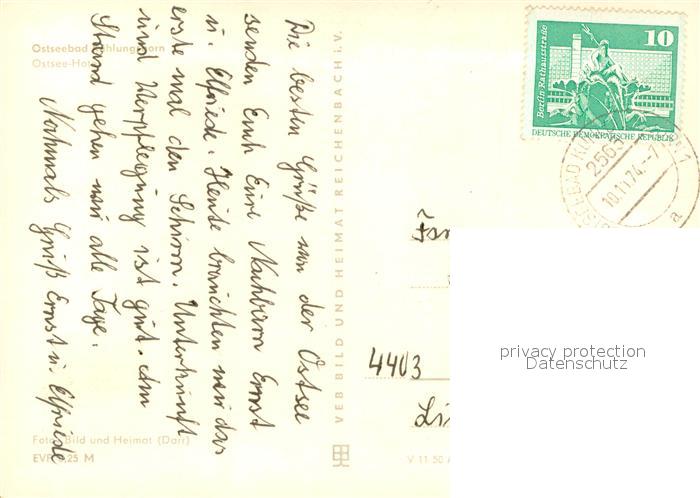 Ostseebad Kühlungsborn
Ostsee-Hotel
Die besten Grüße von der Ostsee
senden Euch Eure Nachbarn Ernst
u. Elfriede. Heute brauchten wir das
erste mal den Schirm. Unterkunft
und Verpflegung ist gut. Am
Strand gehen wir alle Tage.
Nochmals Gruß Ernst u. Elfriede
Foto: Bild und Heimat (Darr)
EVP 0,25 M
VEB BILD UND HEIMAT REICHENBACH i. V.
V 11 50
Berlin Rathausstraße
10
DEUTSCHE DEMOKRATISCHE REPUBLIK
2565
10.11.74
a
4403
privacy protection
Datenschutz